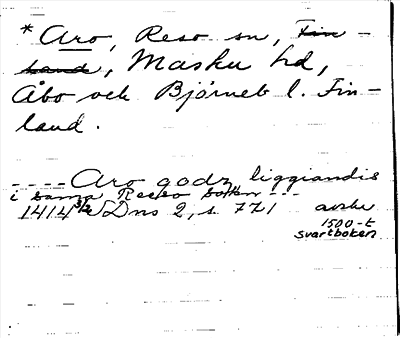 *Aro, Reso sn, Fin-
land, Masku hd,
Åbo och Björneb l. Fin-
land.
---- Aro godz liggiandis
i samma Reso sokn ---
1414 3/2 Dns 2, s. 771 avskr
1500-t
svartboken